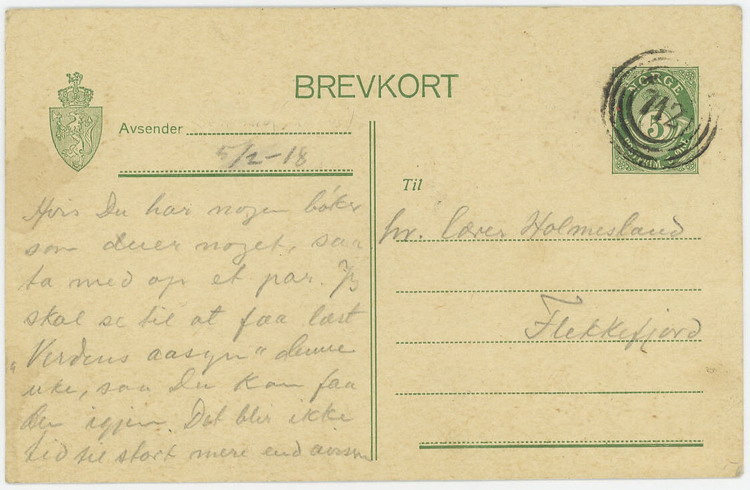 BREVKORT
NORGE
742
5
Avsender
5/2-18
Til
Hvis Du har nogen bøker
som duer noget, saa
ta med op et par. Jeg
skal se til at faa læst
„Verdens aasyn“ denne
uke, saa Du kan faa
den igjen. Det blir ikke
tid til stort mere end avisen
hr. lærer Holmesland
Flekkefjord